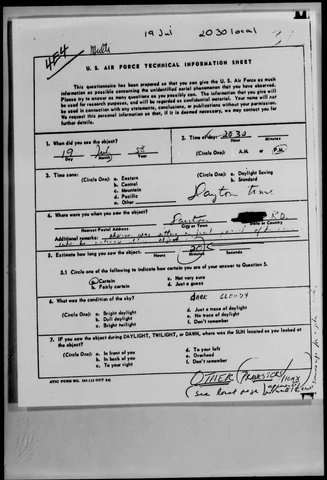 19 Jul 2030 local
454 Multi
U. S. AIR FORCE TECHNICAL INFORMATION SHEET
This questionnaire has been prepared so that you can give the U. S. Air Force as much
information as possible concerning the unidentified aerial phenomenon that you have observed.
Please try to answer as many questions as you possibly can. The information that you give will
be used for research purposes, and will be regarded as confidential material. Your name will not
be used in connection with any statements, conclusions, or publications without your permission.
We request this personal information so that, if it is deemed necessary, we may contact you for
further details.
1. When did you see the object?
19 Jul 58
Day Month Year
2. Time of day: 20 30
Hour Minutes
(Circle One): A.M. or P.M.
3. Time zone:
(Circle One): a. Eastern
b. Central
c. Mountain
d. Pacific
e. Other
(Circle One): a. Daylight Saving
b. Standard
Dayton time
4. Where were you when you saw the object?
Dayton
Nearest Postal Address City or Town State or Country
Additional remarks:
5. Estimate how long you saw the object.
Hours Minutes Seconds
5.1 Circle one of the following to indicate how certain you are of your answer to Question 5.
a. Certain
b. Fairly certain
c. Not very sure
d. Just a guess
6. What was the condition of the sky?
DARK CLOUDY
(Circle One): a. Bright daylight
b. Dull daylight
c. Bright twilight
d. Just a trace of daylight
e. No trace of daylight
f. Don't remember
7. IF you saw the object during DAYLIGHT, TWILIGHT, or DAWN, where was the SUN located as you looked at
the object?
(Circle One): a. In front of you
b. In back of you
c. To your right
d. To your left
e. Overhead
f. Don't remember
ATIC FORM NO. 164 (13 OCT 54)
OTHER
(see last page